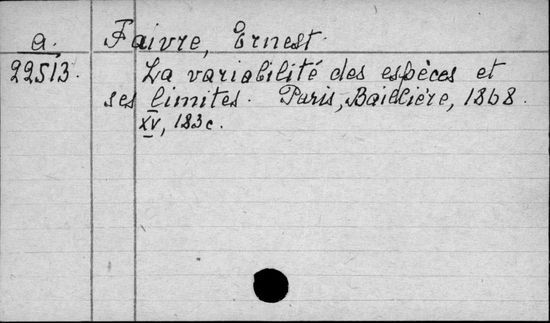 a. Faivre, Ernest.
22513. La variabilité des espèces et
ses limites. Paris, Baillière, 1868.
XV, 183 c.